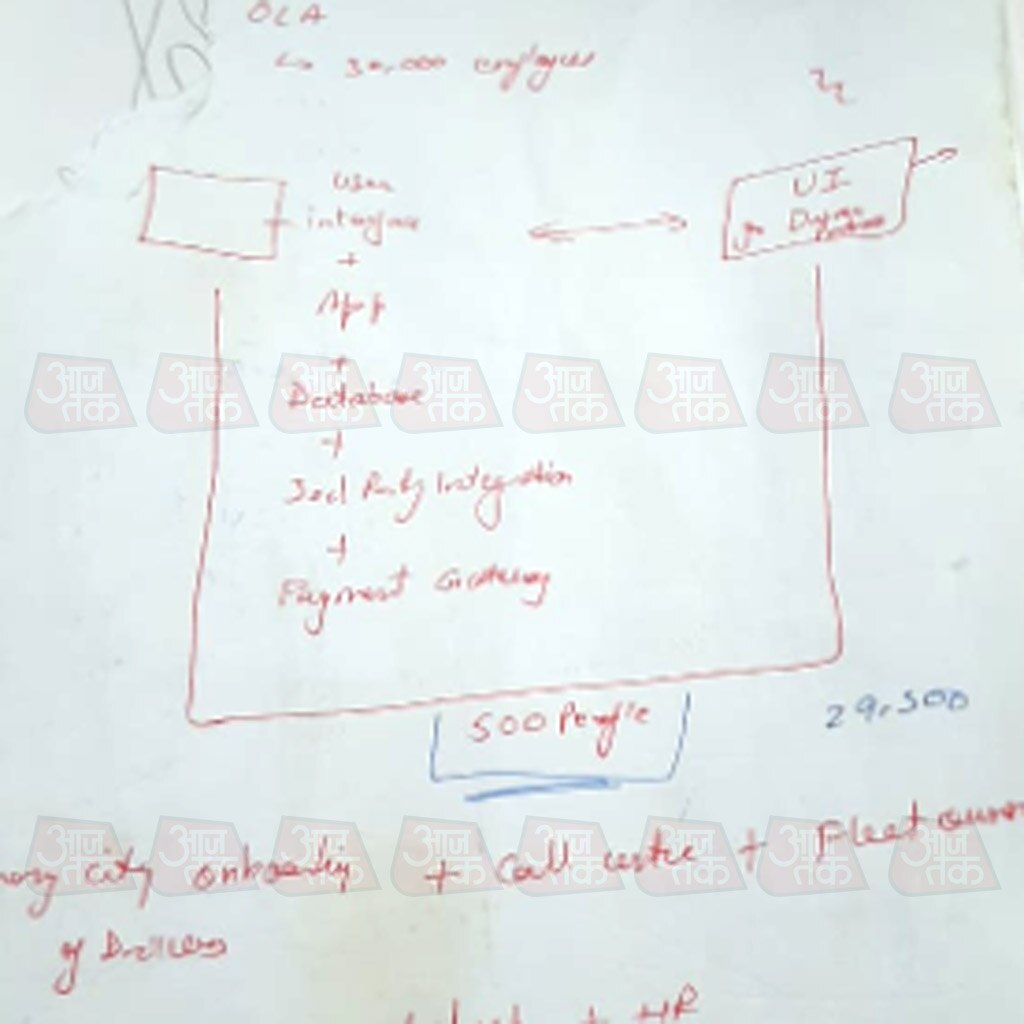 OLA
↳ 30,000 employees
User
interface
+
App
+
Database
+
3rd Party Integration
+
Payment Gateway
UI
500 People
29,500
city onboarding + Call centre + Fleet owner
of Drivers
+ HR
आज तक